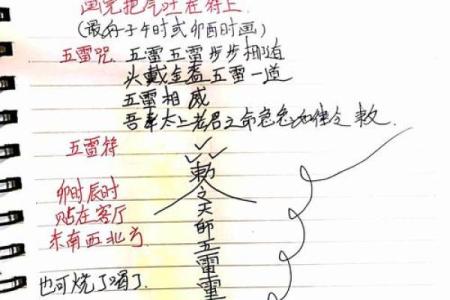 画完把气吐在符上
(最好子午时或卯酉时画)
五雷咒 五雷五雷步步相追
头戴金盔五雷一道
五雷相威
吾奉太上老君之命急急如律令敕
五雷符
敕令天師五雷重
卯时辰时
贴在客厅
东南西北方
也可烧了喝了